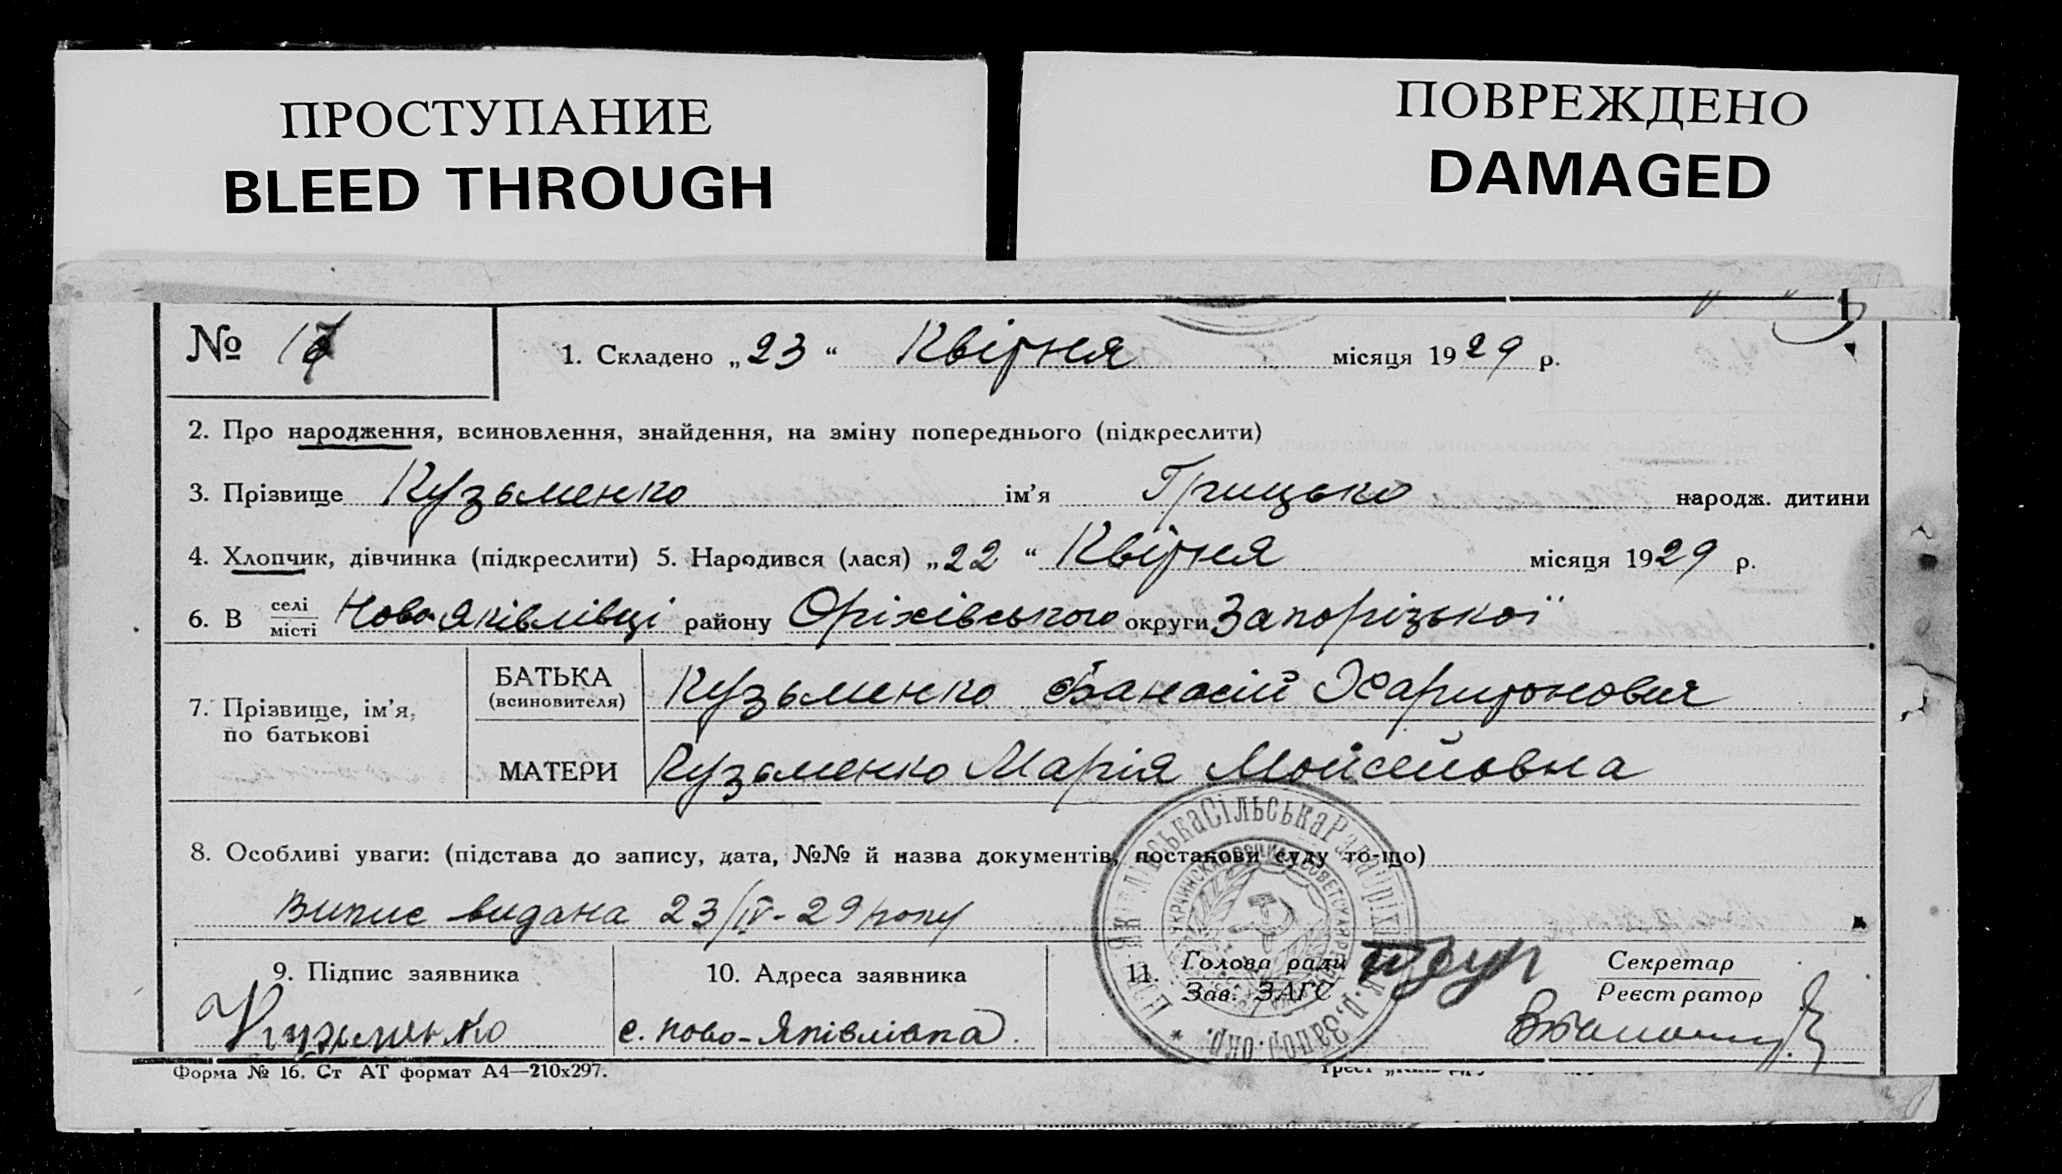 ПРОСТУПАНИЕ
BLEED THROUGH
ПОВРЕЖДЕНО
DAMAGED
№ 17
1. Складено „23“ Квітня місяця 1929 р.
2. Про народження, всиновлення, знайдення, на зміну попереднього (підкреслити)
3. Прізвище Кузьменко ім’я Грицько народж. дитини
4. Хлопчик, дівчинка (підкреслити) 5. Народився (лася) „22“ Квітня місяця 1929 р.
6. В селі місті Ново-Яківлівці району Оріхівського округи Запорізької
7. Прізвище, ім’я, по батькові
БАТЬКА (всиновителя) Кузьменко Панасій Харитонович
МАТЕРИ Кузьменко Марія Мойсейовна
8. Особливі уваги: (підстава до запису, дата, №№ й назва документів, постанови суду то-що)
Випис видана 23/IV-29 року
9. Підпис заявника
Кузьменко
10. Адреса заявника
с. Ново-Яківлівка.
11. Голова ради
Зав. ЗАГС
Секретар
Реєстратор
Форма № 16. Ст АТ формат А4—210х297.